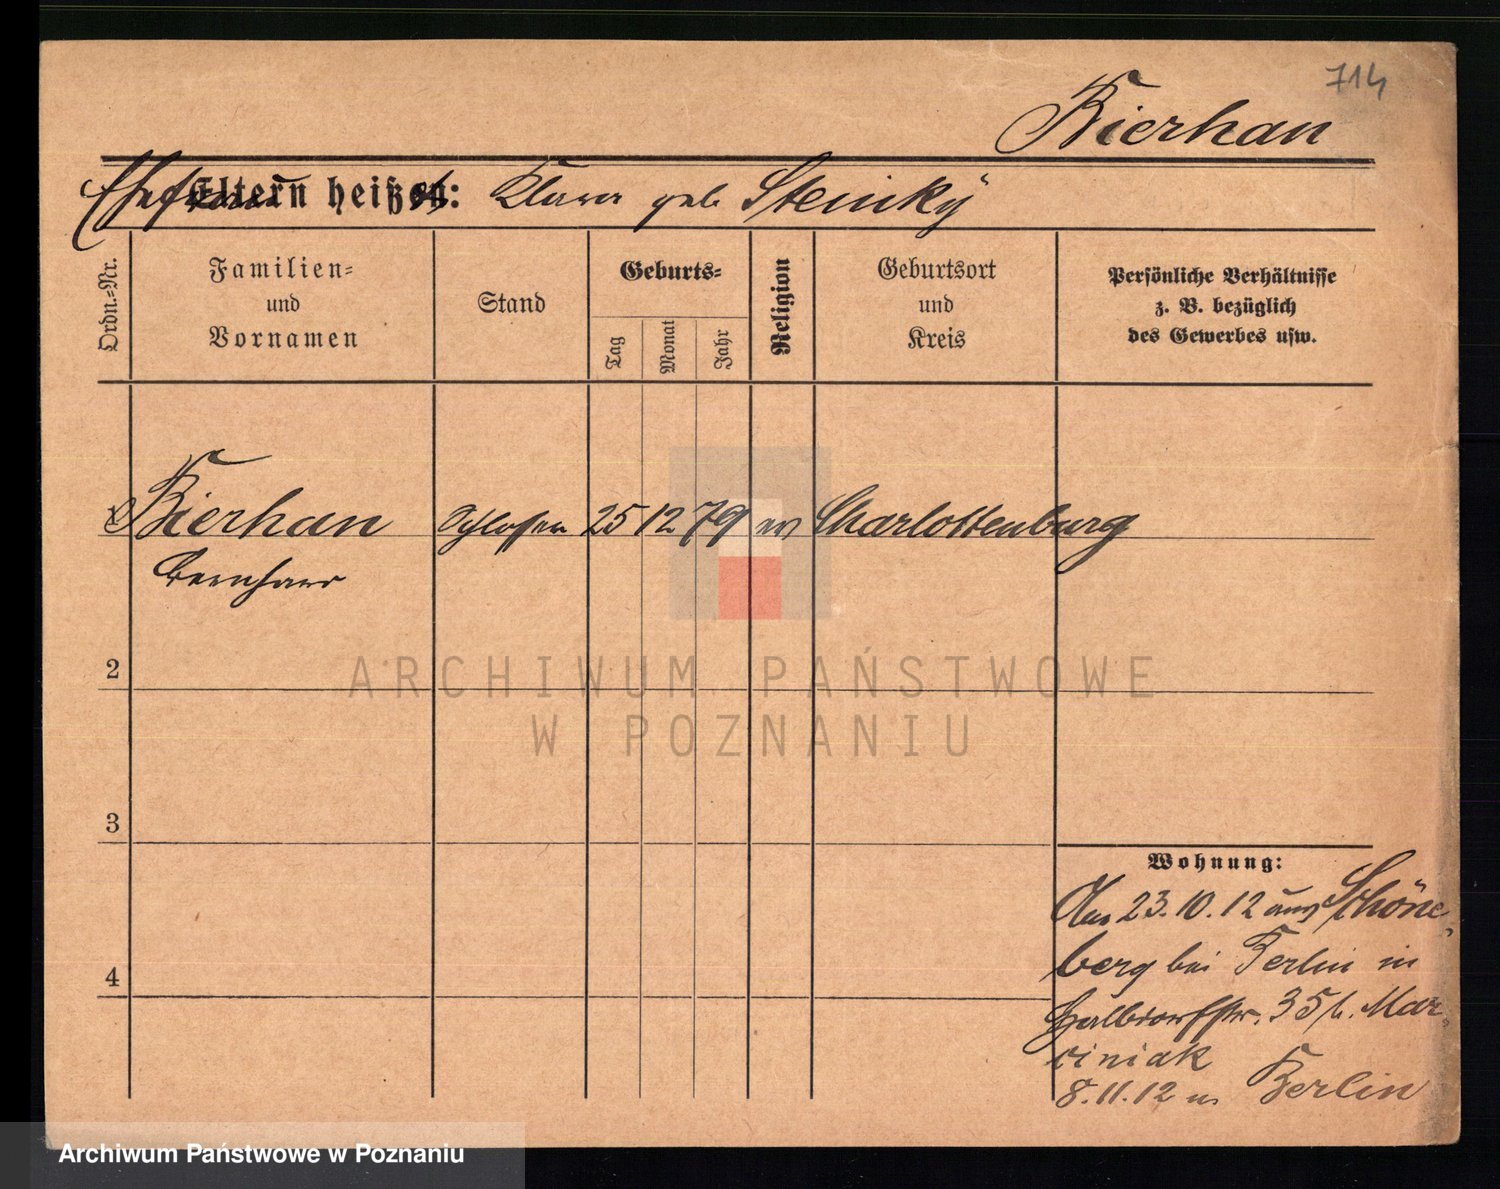 714
Bierhan
Eltern heißen:
Ehefrau
Klara geb Steinky
Ordn.=Nr.
Familien=
und
Vornamen
Stand
Geburts=
Tag
Monat
Jahr
Religion
Geburtsort
und
Kreis
Persönliche Verhältnisse
z. B. bezüglich
des Gewerbes usw.
Bierhan
Bernhard
Schlosser
25
12
79
ev
Charlottenburg
2
3
4
Wohnung:
Am 23.10.12 aus Schöne
berg bei Berlin in
Halbdorfstr. 35 b. Mar
ciniak
8.11.12 n. Berlin
ARCHIWUM PAŃSTWOWE
W POZNANIU
Archiwum Państwowe w Poznaniu